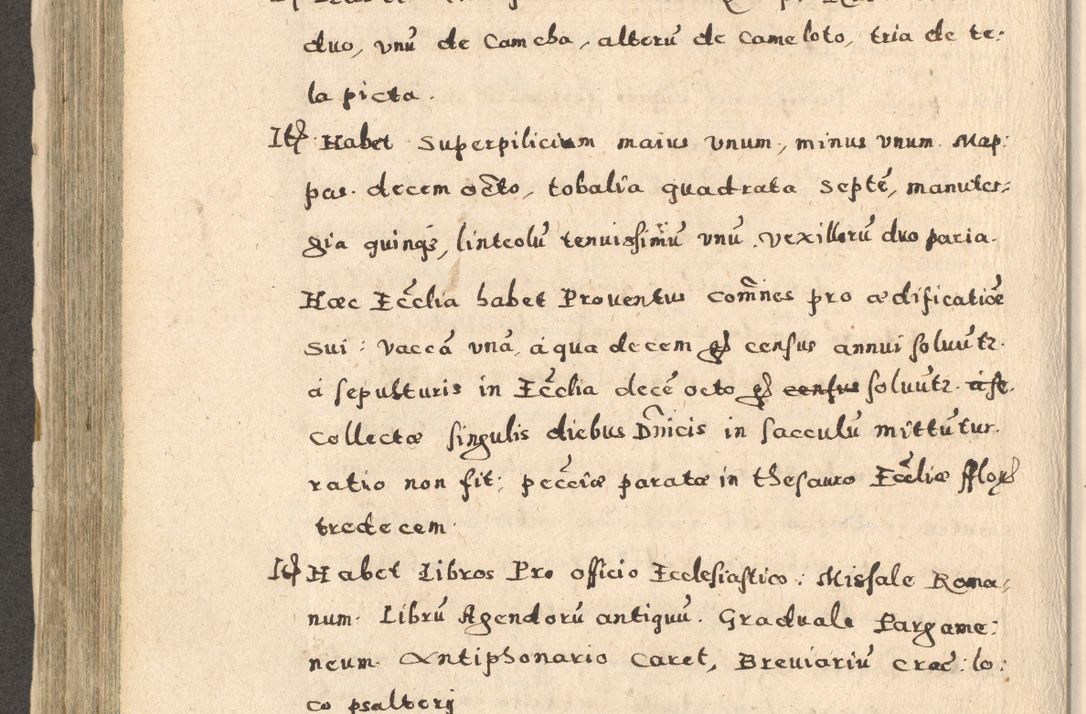 duo, vnũ de Camcha, alterũ de Cameloto, tria de te:
la picta.
Itẽ Habet Superpilicium maius vnum, minus vnum. Map:
pas. decem octo, tobalia quadrata septẽ, manuter:
gia quinqз, linteolũ tenuissimũ vnũ, vexillorũ duo paria.
Hæc Ecclia habet Prouentus com̃nes pro ædificatiõe
sui: vaccã vnã, á qua decem gr̃ census annui soluũtr.
á sepulturis in Ecclia decẽ octo gr̃ census soluũtr.
Collectæ singulis diebus Dñicis in sacculũ mittũtur.
ratio non fit; pecc̃iæ paratæ in thesauro Eccliæ fflor̃
tredecem.
Itẽ Habet Libros Pro officio Ecclesiastico: Missale Roma:
num. Librũ Agendorũ antiquũ. Graduale Pargame:
neum. Antiphonario caret, Breuiariũ Crac: lo:
co psalterij